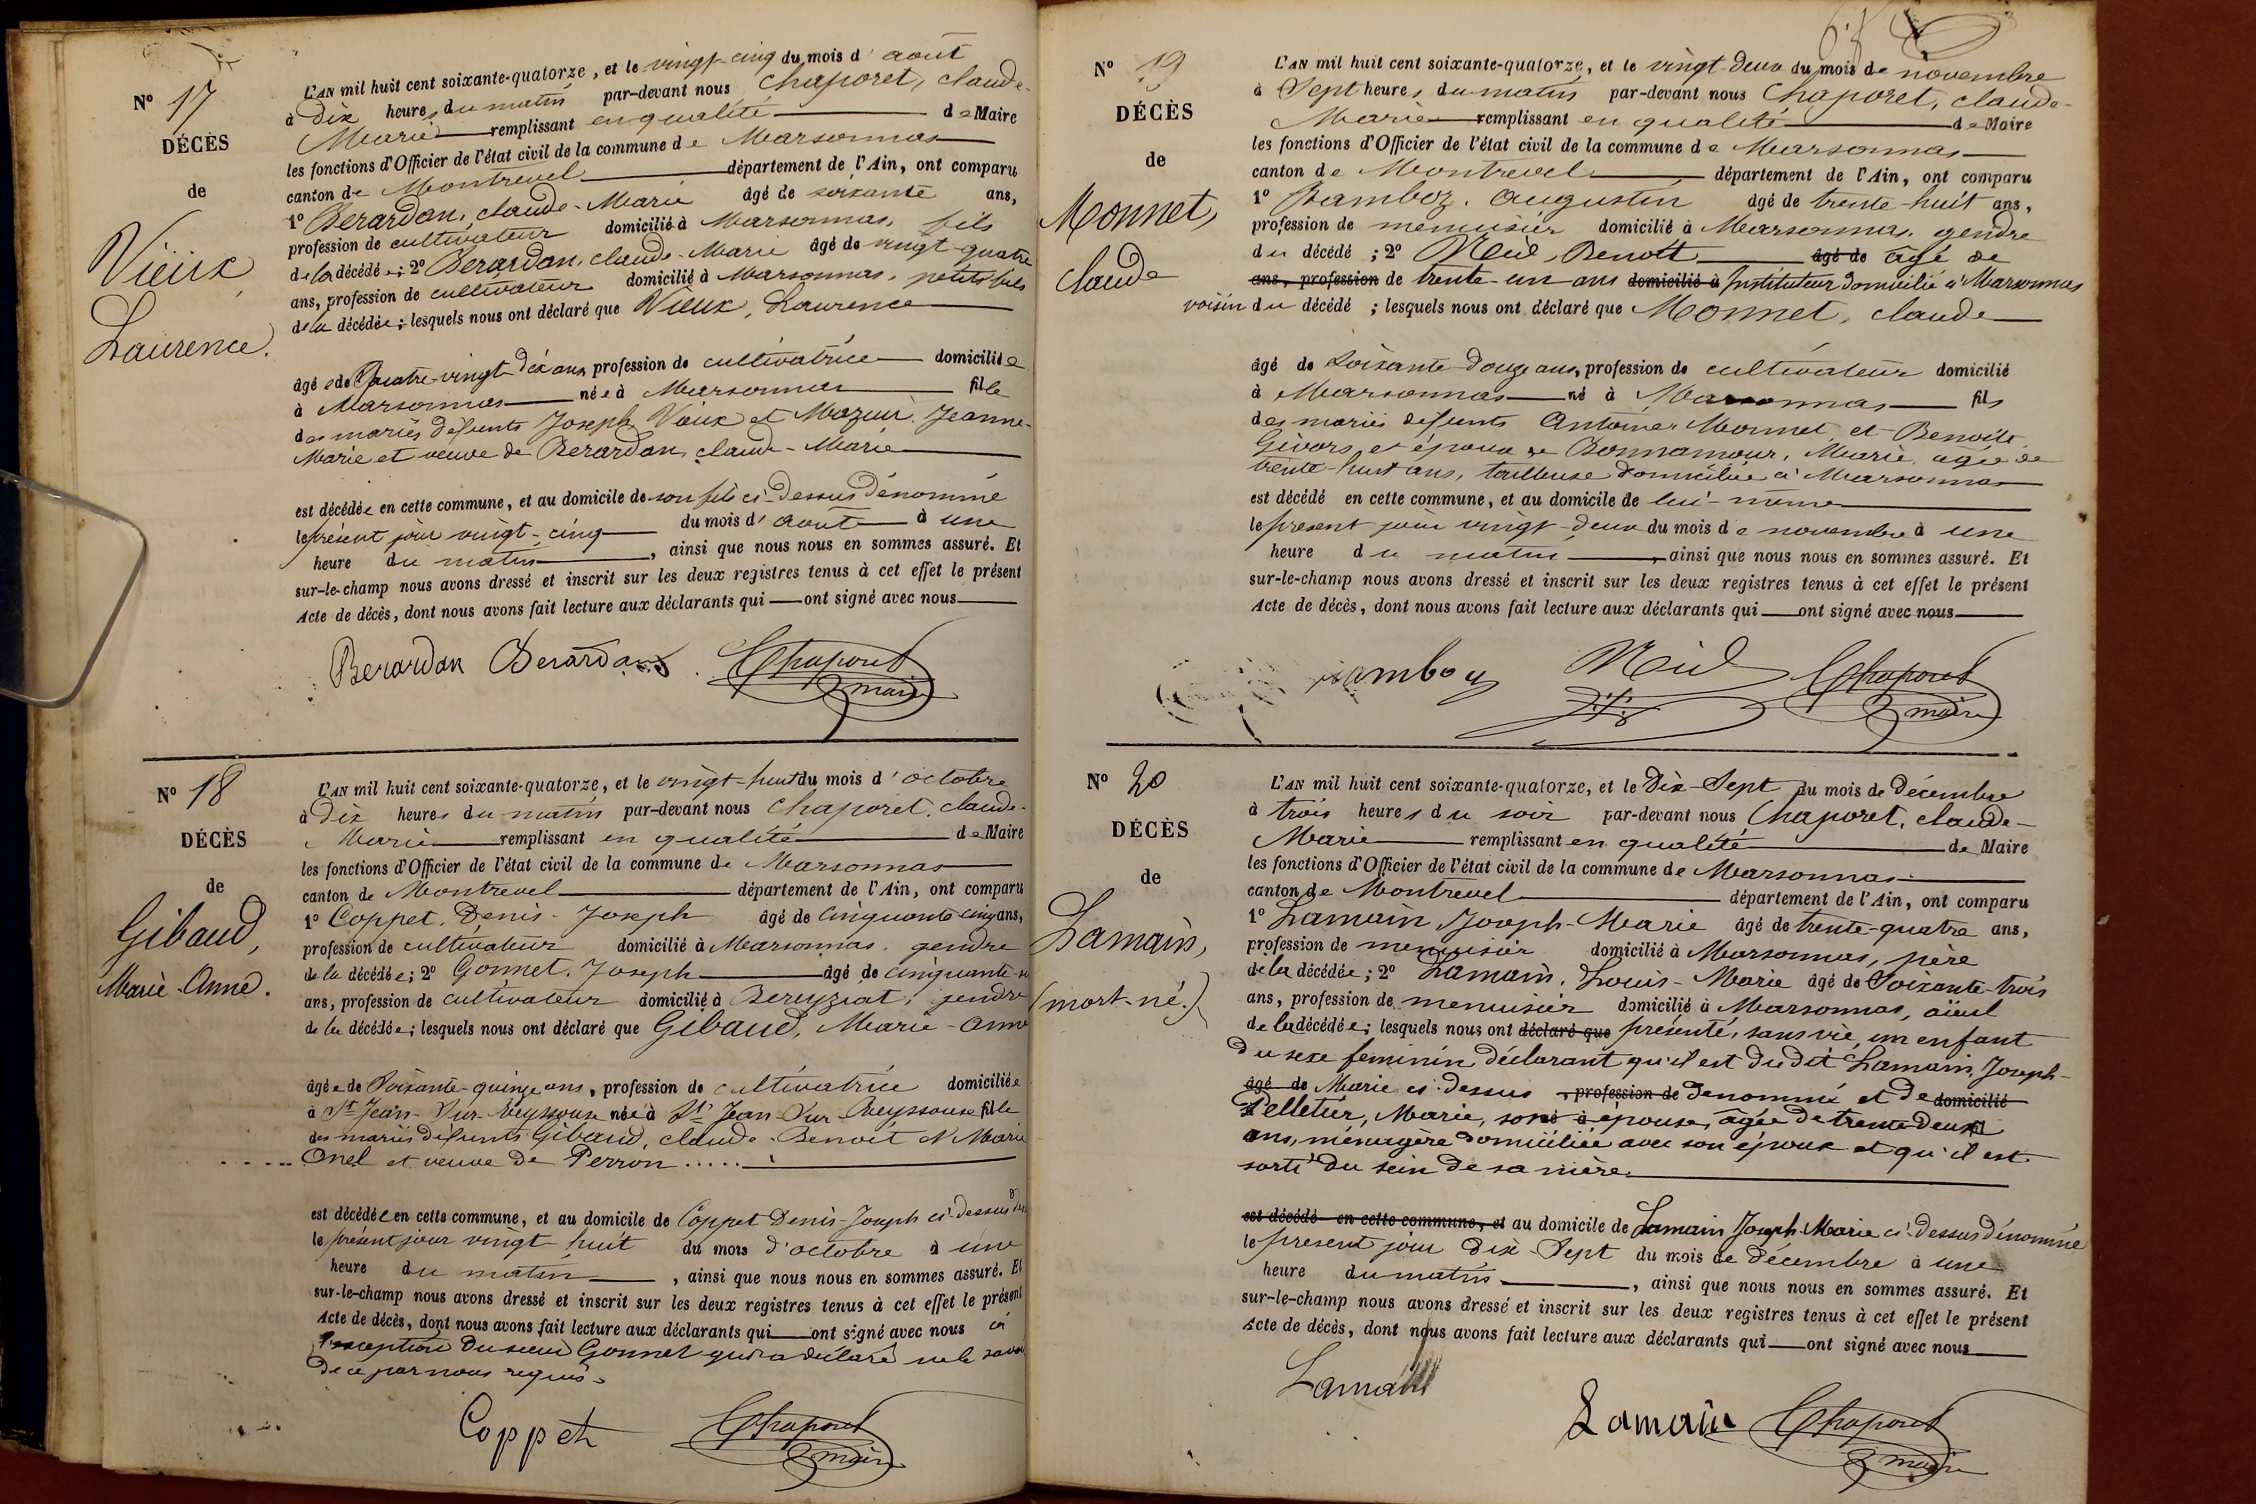 N° 17
DÉCÈS
de
Vieux,
Laurence.
L'AN mil huit cent soixante-quatorze, et le vingt-cinq du mois d'août
à dix heures du matin par-devant nous Chaporet, claude-
Marie remplissant en qualité de Maire
les fonctions d'Officier de l'état civil de la commune de Marsonnas
canton de Montrevel département de l'Ain, ont comparu
1° Berardan, claude-Marie âgé de soixante ans,
profession de cultivateur domicilié à Marsonnas, fils
de la décédée; 2° Berardan, claude-Marie âgé de vingt-quatre
ans, profession de cultivateur domicilié à Marsonnas, petits fils
de la décédée; lesquels nous ont déclaré que Vieux, Laurence
âgée de Quatre-vingt dix ans, profession de cultivatrice domiciliée
à Marsonnas née à Marsonnas fille
des mariés défunts Joseph Vieux et Mazuir Jeanne-
Marie et veuve de Berardan, claude-Marie
est décédée en cette commune, et au domicile de son fils ci-dessus dénommé
le présent jour vingt-cinq du mois d'août à une
heure du matin, ainsi que nous nous en sommes assuré. Et
sur-le-champ nous avons dressé et inscrit sur les deux registres tenus à cet effet le présent
Acte de décès, dont nous avons fait lecture aux déclarants qui ont signé avec nous
Berardan Berardan Chaporet
maire
N° 18
DÉCÈS
de
Gibaud,
Marie-Anne.
L'AN mil huit cent soixante-quatorze, et le vingt-huit du mois d'octobre
à dix heures du matin par-devant nous Chaporet, claude-
Marie remplissant en qualité de Maire
les fonctions d'Officier de l'état civil de la commune de Marsonnas
canton de Montrevel département de l'Ain, ont comparu
1° Coppet, Denis-Joseph âgé de cinquante cinq ans,
profession de cultivateur domicilié à Marsonnas, gendre
de la décédée; 2° Gonnet, Joseph âgé de cinquante-
ans, profession de cultivateur domicilié à Bereyziat, gendre
de la décédée; lesquels nous ont déclaré que Gibaud, Marie-Anne
âgée de Soixante-quinze ans, profession de cultivatrice domiciliée
à St Jean-sur-Reyssouze née à St Jean-sur-Reyssouse fille
des mariés défunts Gibaud, claude-Benoit et Marie
Onel et veuve de Perron.....
est décédée en cette commune, et au domicile de Coppet Denis-Joseph ci-dessus
le présent jour vingt huit du mois d'octobre à une
heure du matin, ainsi que nous nous en sommes assuré. Et
sur-le-champ nous avons dressé et inscrit sur les deux registres tenus à cet effet le présent
Acte de décès, dont nous avons fait lecture aux déclarants qui ont signé avec nous à
l'exception du sieur Gonnet qui a déclaré ne le savoir
de ce par nous requis.
Coppet Chaporet
maire
N° 19
DÉCÈS
de
Monnet,
claude
L'AN mil huit cent soixante-quatorze, et le vingt-deux du mois de novembre
à Sept heures du matin par-devant nous Chaporet, claude-
Marie remplissant en qualité de Maire
les fonctions d'Officier de l'état civil de la commune de Marsonnas
canton de Montrevel département de l'Ain, ont comparu
1° Ramboz, Augustin âgé de trente-huit ans,
profession de menuisier domicilié à Marsonnas, gendre
du décédé; 2° Neid, Benoît âgé de âgé de
ans, profession de trente-un ans domicilié à Instituteur domicilié à Marsonnas
voisin du décédé; lesquels nous ont déclaré que Monnet, claude
âgé de Soixante-douze ans, profession de cultivateur domicilié
à Marsonnas né à Marsonnas fils
des mariés défunts Antoine Monnet et Benoite
Givors et époux de Bonnamour, Marie, âgée de
trente-huit ans, tailleuse domiciliée à Marsonnas
est décédé en cette commune, et au domicile de lui-même
le présent jour vingt-deux du mois de novembre à une
heure du matin, ainsi que nous nous en sommes assuré. Et
sur-le-champ nous avons dressé et inscrit sur les deux registres tenus à cet effet le présent
Acte de décès, dont nous avons fait lecture aux déclarants qui ont signé avec nous
Ramboz Neid Chaporet
maire
N° 20
DÉCÈS
de
Lamain,
(mort-né.)
L'AN mil huit cent soixante-quatorze, et le Dix-Sept du mois de décembre
à trois heures du soir par-devant nous Chaporet, claude-
Marie remplissant en qualité de Maire
les fonctions d'Officier de l'état civil de la commune de Marsonnas
canton de Montrevel département de l'Ain, ont comparu
1° Lamain, Joseph-Marie âgé de trente-quatre ans,
profession de menuisier domicilié à Marsonnas, père
de la décédée; 2° Lamain, Louis-Marie âgé de Soixante-trois
ans, profession de menuisier domicilié à Marsonnas, aïeul
de la décédée; lesquels nous ont déclaré que présenté, sans vie, un enfant
du sexe féminin déclarant qu'il est du dit Lamain, Joseph-
âgé de Marie ci-dessus, profession de dénommé et de domicilié
Pelletier, Marie, son né à épouse, âgée de trente-deux fil
ans, ménagère domiciliée avec son époux et qu'il est
sorti du sein de sa mère.
est décédé en cette commune, et au domicile de Lamain Joseph-Marie ci-dessus dénommé
le présent jour Dix-Sept du mois de décembre à une
heure du matin, ainsi que nous nous en sommes assuré. Et
sur-le-champ nous avons dressé et inscrit sur les deux registres tenus à cet effet le présent
Acte de décès, dont nous avons fait lecture aux déclarants qui ont signé avec nous
Lamain
Lamain Chaporet
maire